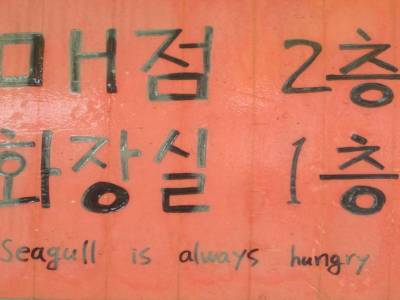 매점 2층
화장실 1층
Seagull is always hungry